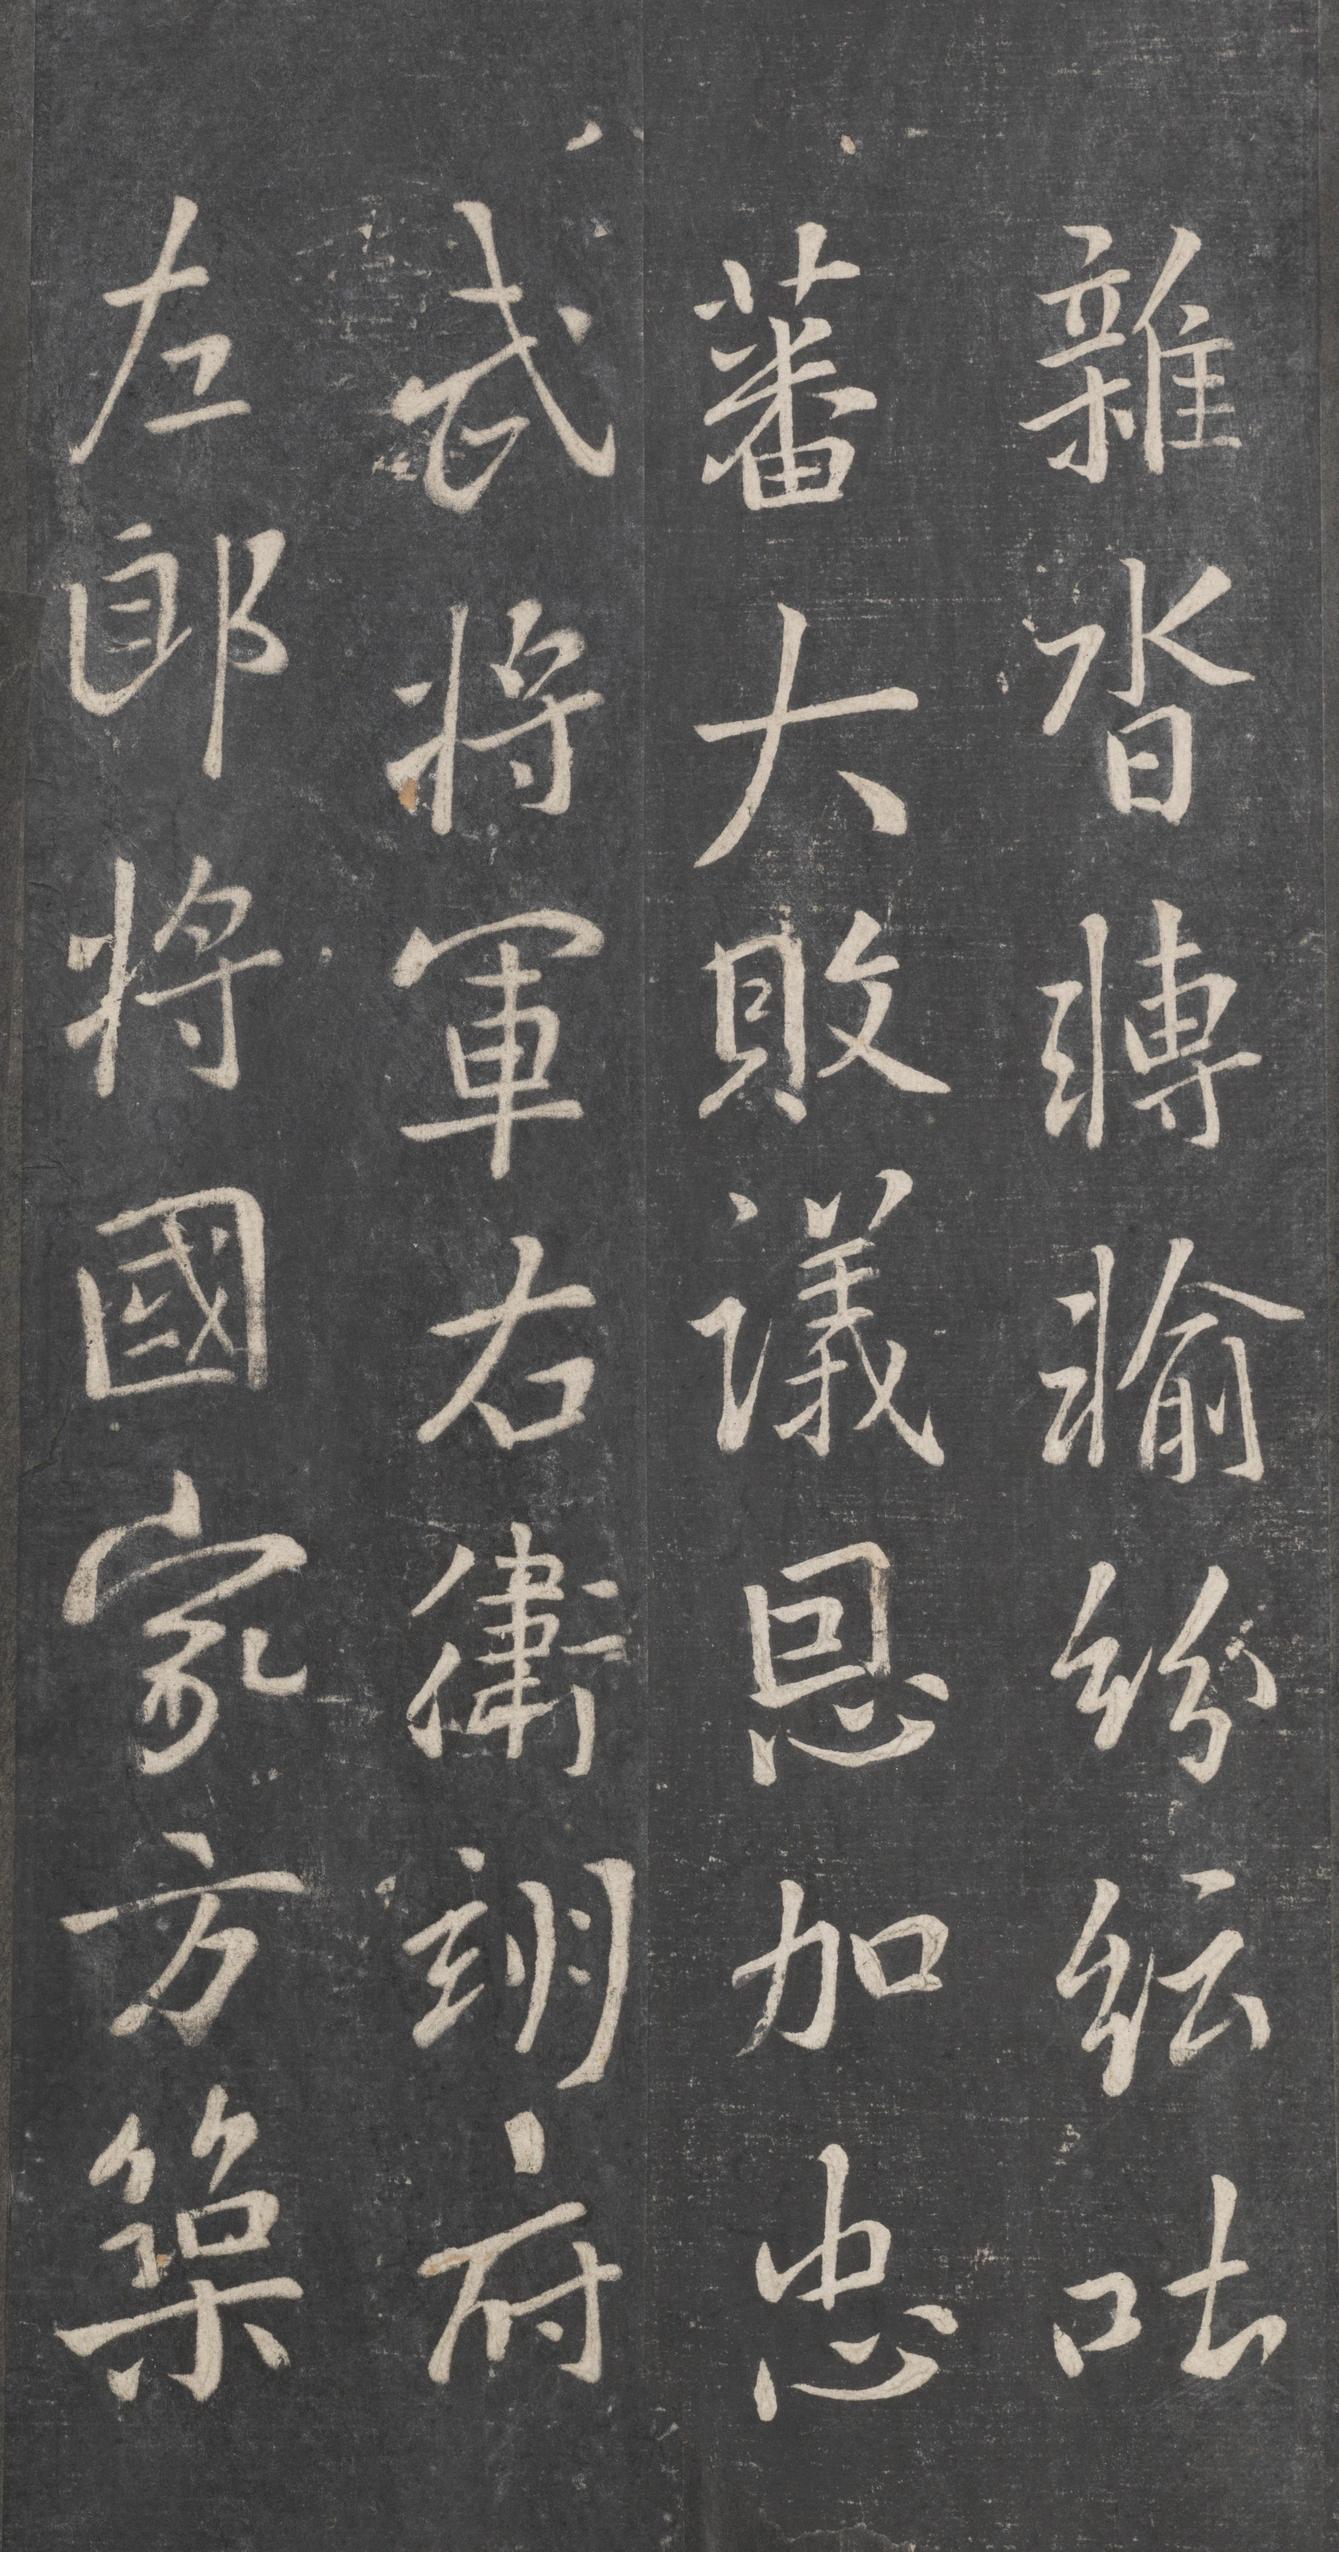 雜沓轉輸紛紜吐
蕃大敗議恩加忠
武將軍右衛翊府
左郎將國家方築